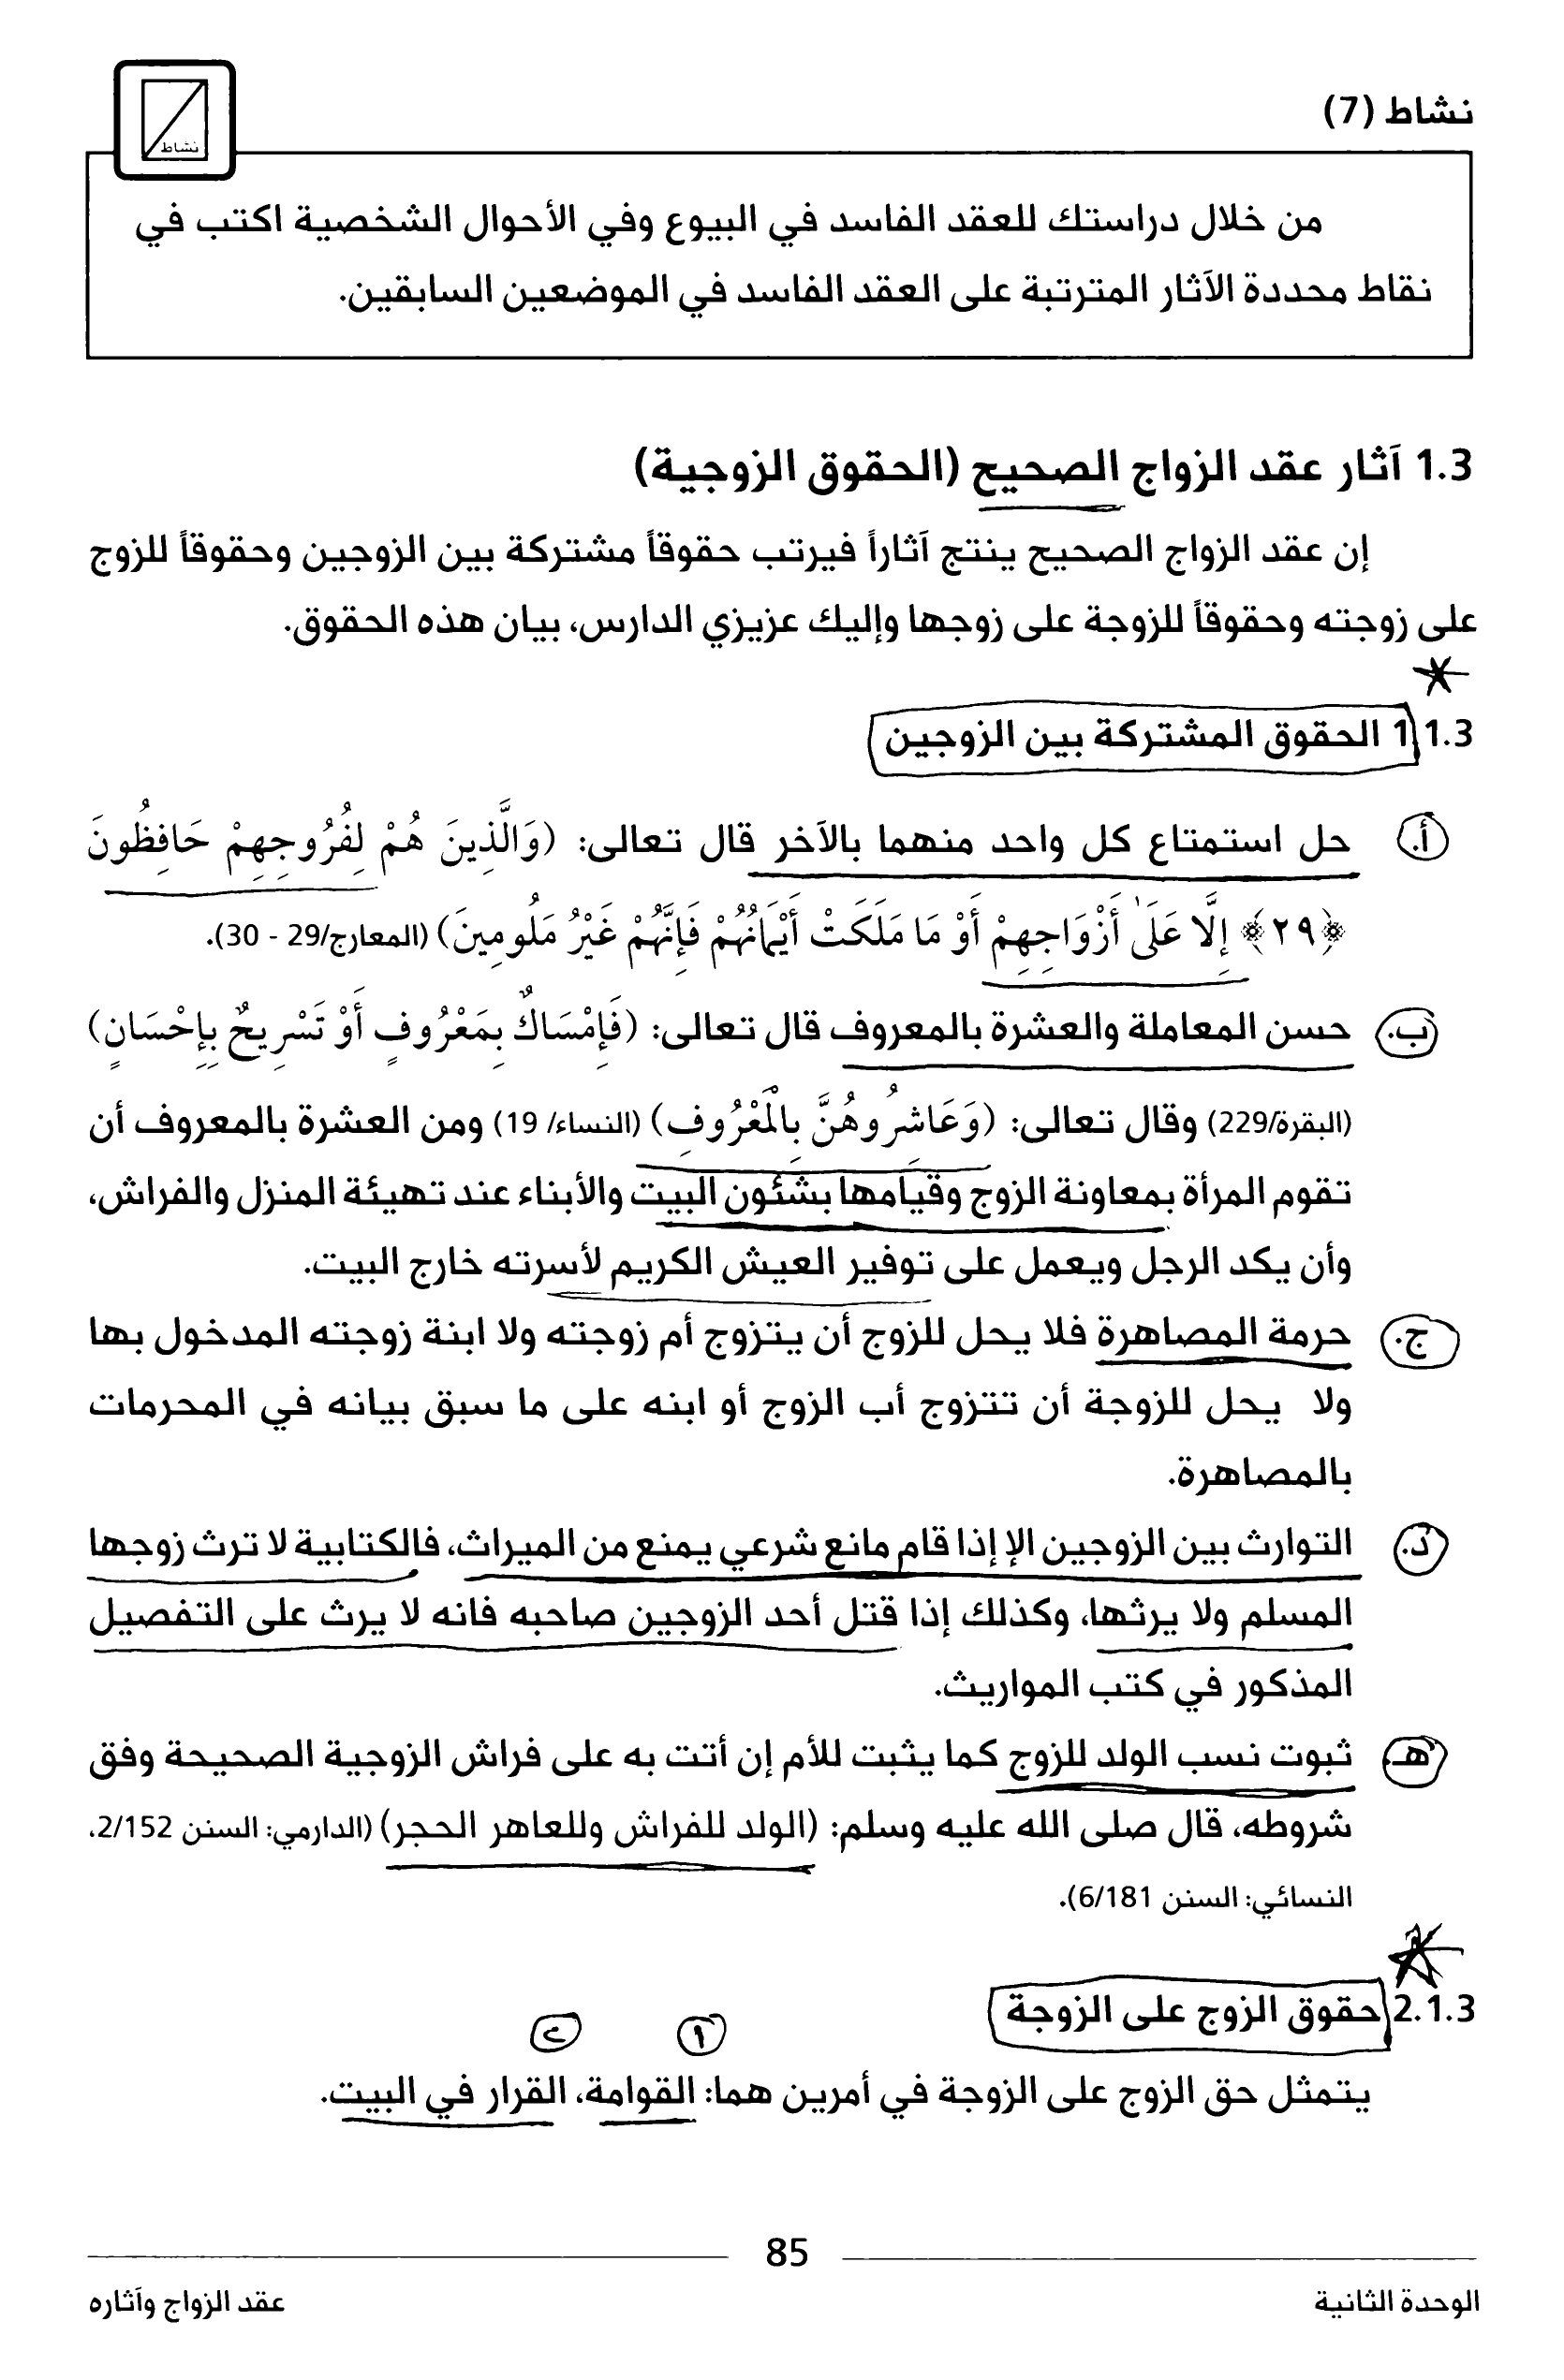 نشاط (7)
نشاط
من خلال دراستك للعقد الفاسد في البيوع وفي الأحوال الشخصية اكتب في
نقاط محددة الآثار المترتبة على العقد الفاسد في الموضعين السابقين.
1.3 آثار عقد الزواج الصحيح (الحقوق الزوجية)
إن عقد الزواج الصحيح ينتج آثاراً فيرتب حقوقاً مشتركة بين الزوجين وحقوقاً للزوج
على زوجته وحقوقاً للزوجة على زوجها وإليك عزيزي الدارس، بيان هذه الحقوق.
1.1.3 الحقوق المشتركة بين الزوجين
أ. حل استمتاع كل واحد منهما بالآخر قال تعالى: (وَالَّذِينَ هُمْ لِفُرُوجِهِمْ حَافِظُونَ
﴿٢٩﴾ إِلَّا عَلَىٰ أَزْوَاجِهِمْ أَوْ مَا مَلَكَتْ أَيْمَانُهُمْ فَإِنَّهُمْ غَيْرُ مَلُومِينَ) (المعارج/29 - 30).
ب. حسن المعاملة والعشرة بالمعروف قال تعالى: (فَإِمْسَاكٌ بِمَعْرُوفٍ أَوْ تَسْرِيحٌ بِإِحْسَانٍ)
(البقرة/229) وقال تعالى: (وَعَاشِرُوهُنَّ بِالْمَعْرُوفِ) (النساء/ 19) ومن العشرة بالمعروف أن
تقوم المرأة بمعاونة الزوج وقيامها بشئون البيت والأبناء عند تهيئة المنزل والفراش،
وأن يكد الرجل ويعمل على توفير العيش الكريم لأسرته خارج البيت.
ج. حرمة المصاهرة فلا يحل للزوج أن يتزوج أم زوجته ولا ابنة زوجته المدخول بها
ولا يحل للزوجة أن تتزوج أب الزوج أو ابنه على ما سبق بيانه في المحرمات
بالمصاهرة.
د. التوارث بين الزوجين الإ إذا قام مانع شرعي يمنع من الميراث، فالكتابية لا ترث زوجها
المسلم ولا يرثها، وكذلك إذا قتل أحد الزوجين صاحبه فانه لا يرث على التفصيل
المذكور في كتب المواريث.
هـ. ثبوت نسب الولد للزوج كما يثبت للأم إن أتت به على فراش الزوجية الصحيحة وفق
شروطه، قال صلى الله عليه وسلم: (الولد للفراش وللعاهر الحجر) (الدارمي: السنن 2/152،
النسائي: السنن 6/181).
2.1.3 حقوق الزوج على الزوجة
١ ٢
يتمثل حق الزوج على الزوجة في أمرين هما: القوامة، القرار في البيت.
85
الوحدة الثانية
عقد الزواج وآثاره